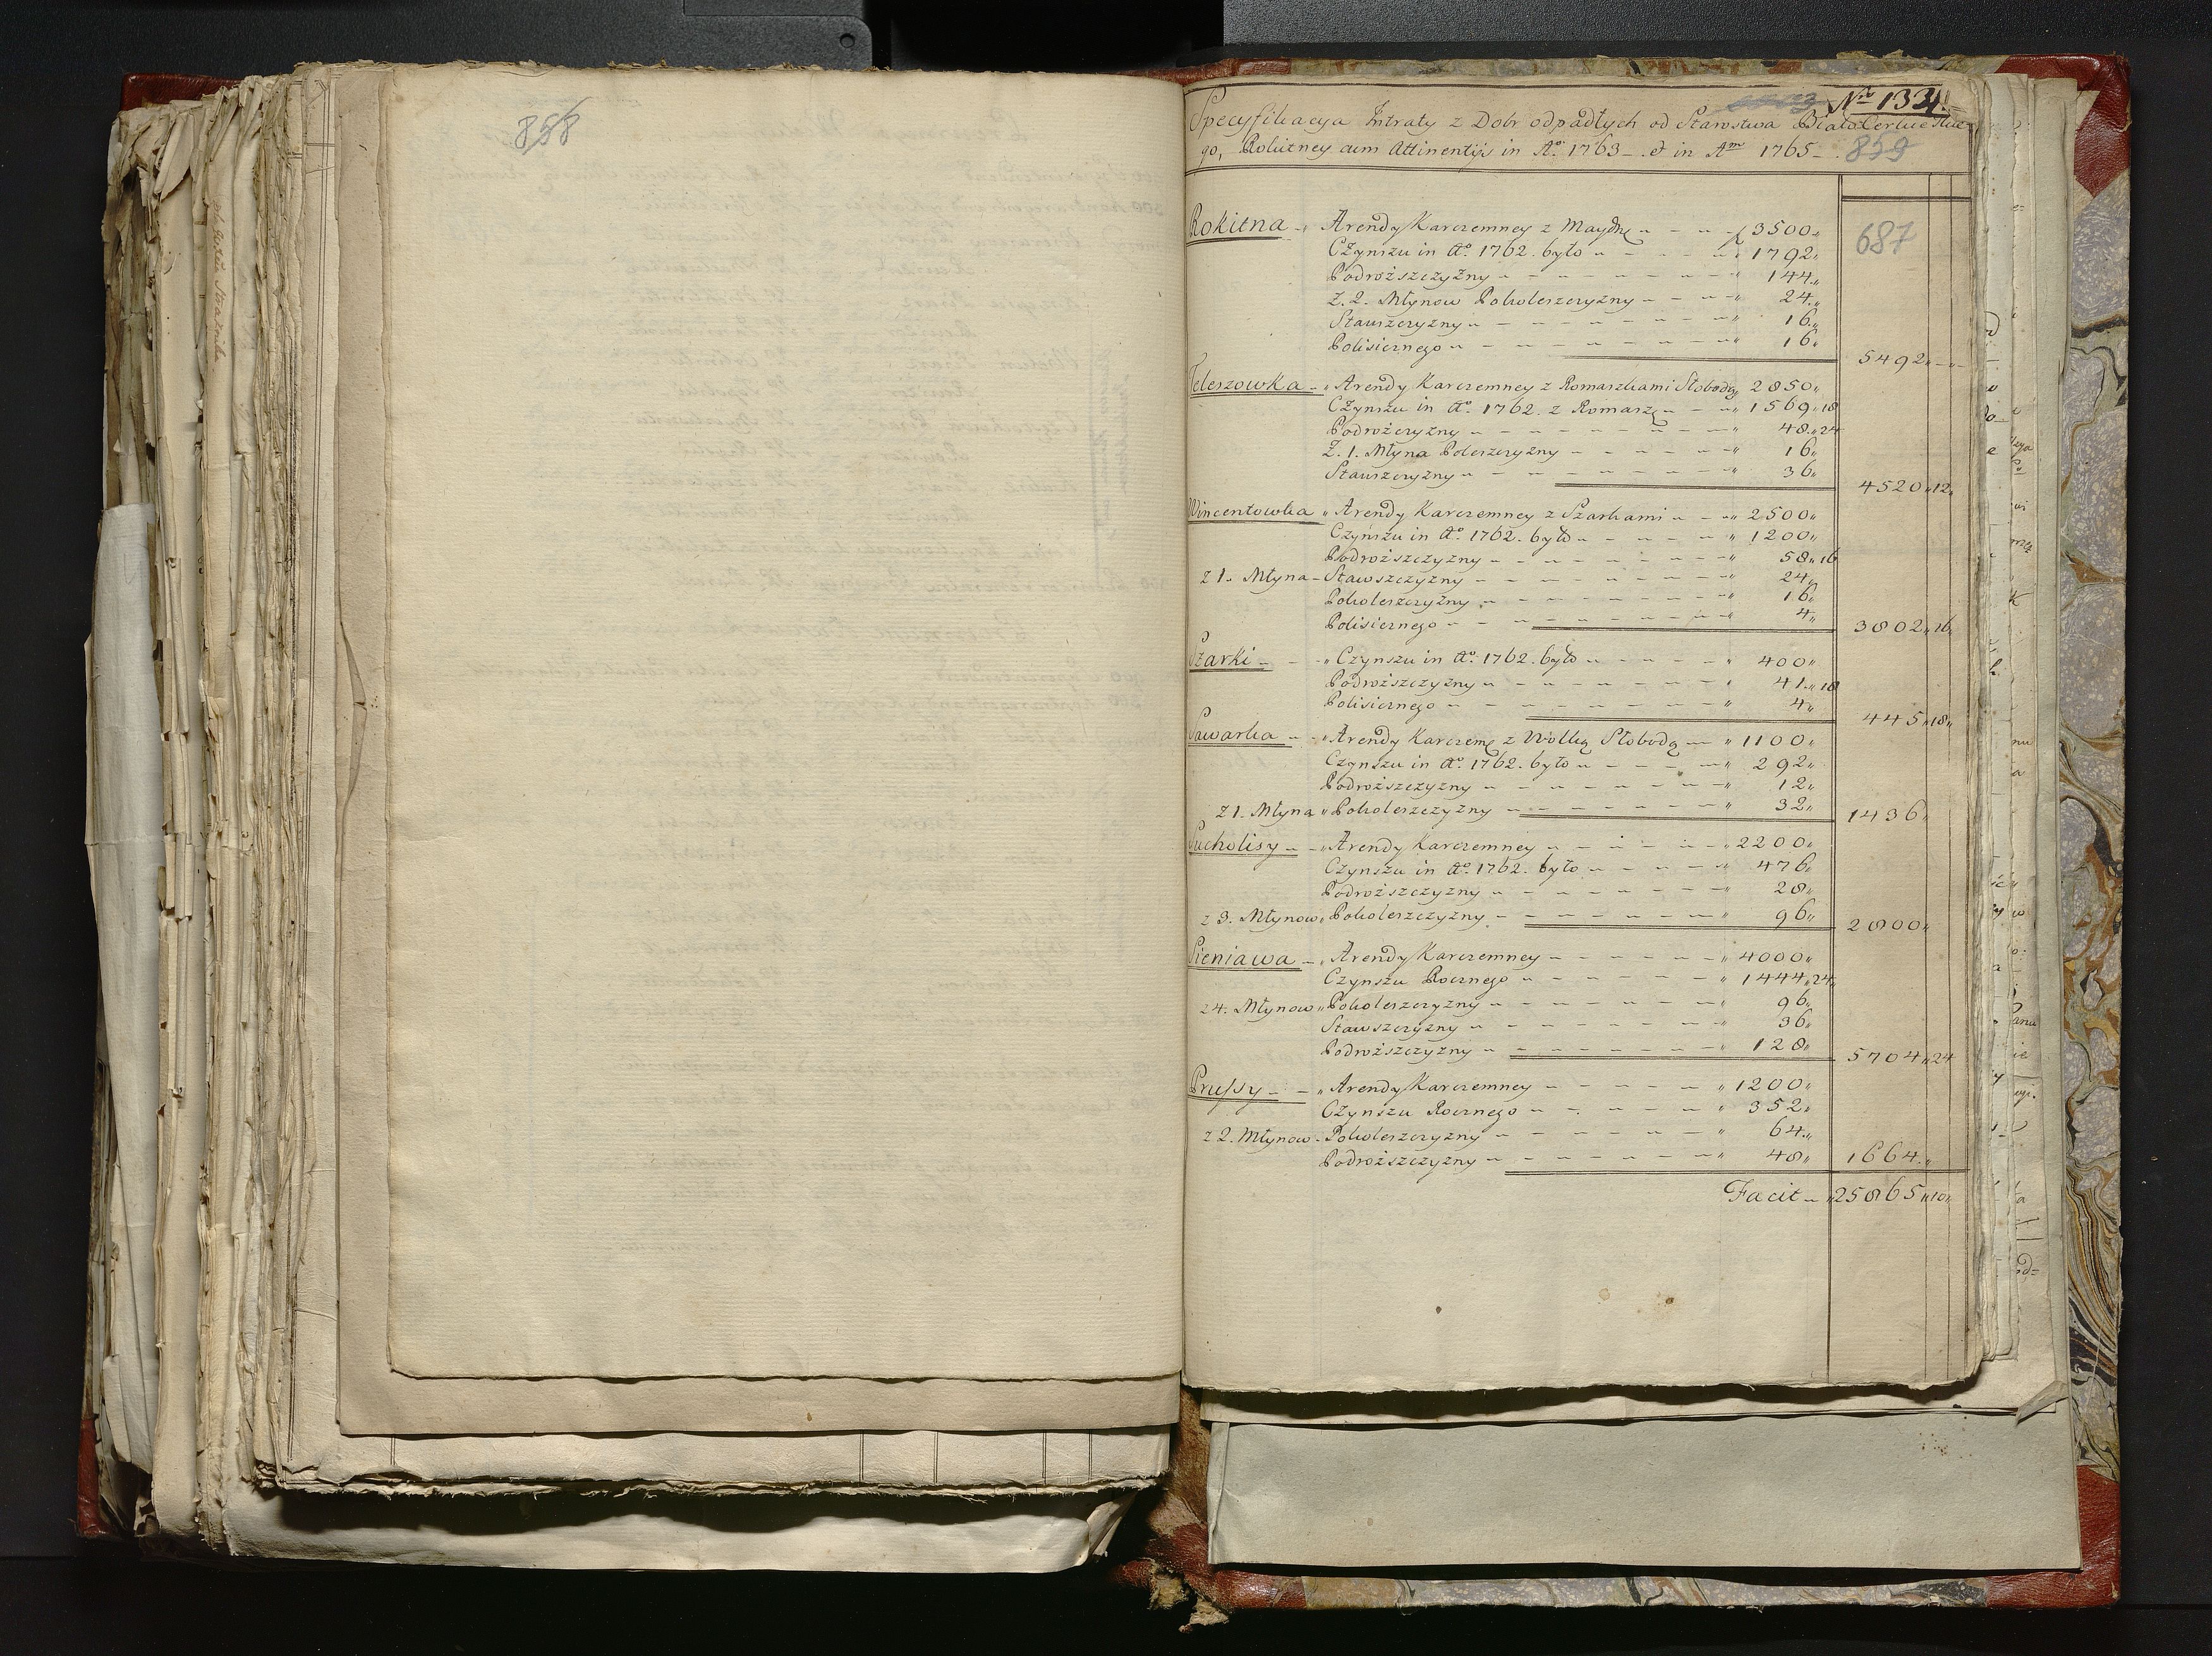 858
Nro 1331.
Specyfikacya Intraty z Dobr odpadłych od Starostwa Białocerkiewskie-
go, Rokitney cum Attinentijs in Ao 1763 et in Am 1765 859
687
Rokitna Arendy Karczemney z Maydn 3500
Czynszu in Ao 1762. było 1792
Podroższczyzny 144
Z. 2. Młynow Pokoleszczyzny 24
Stawszczyzny 16
Polisiernego 16
5492
Teleszowka Arendy Karczemney z Romaszkami Słobodą 2850
Czynszu in Ao 1762. z Romasz 1569 18
Podrożczyzny 48 24
Z. 1. Młyna Poleszczyzny 16
Stawszczyzny 36
4520 12
Wincentowka Arendy Karczemney z Szarkami 2500
Czynszu in Ao 1762. było 1200
Podroższczyzny 58 16
z 1. Młyna Stawszczyzny 24
Pokoleszczyzny 16
Polisiernego 4
3802 16
Szarki Czynszu in Ao 1762. było 400
Podroższczyzny 41 18
Polisiernego 4
445 18
Sawarka Arendy Karczem z Wolką Słobodą 1100
Czynszu in Ao 1762. było 292
Podroższczyzny 12
z 1. Młyna Pokoleszczyzny 32
1436
Sucholisy Arendy Karczemney 2200
Czynszu in Ao 1762. było 476
Podroższczyzny 28
z 3. Młynow Pokoleszczyzny 96
2800
Sieniawa Arendy Karczemney 4000
Czynszu Rocznego 1444 24
z 4. Młynow Pokoleszczyzny 96
Stawszczyzny 36
Podroższczyzny 128
5704 24
Prussy Arendy Karczemney 1200
Czynszu Rocznego 352
z 2. Młynow Pokoleszczyzny 64
Podroższczyzny 48
1664
Facit 25865 10